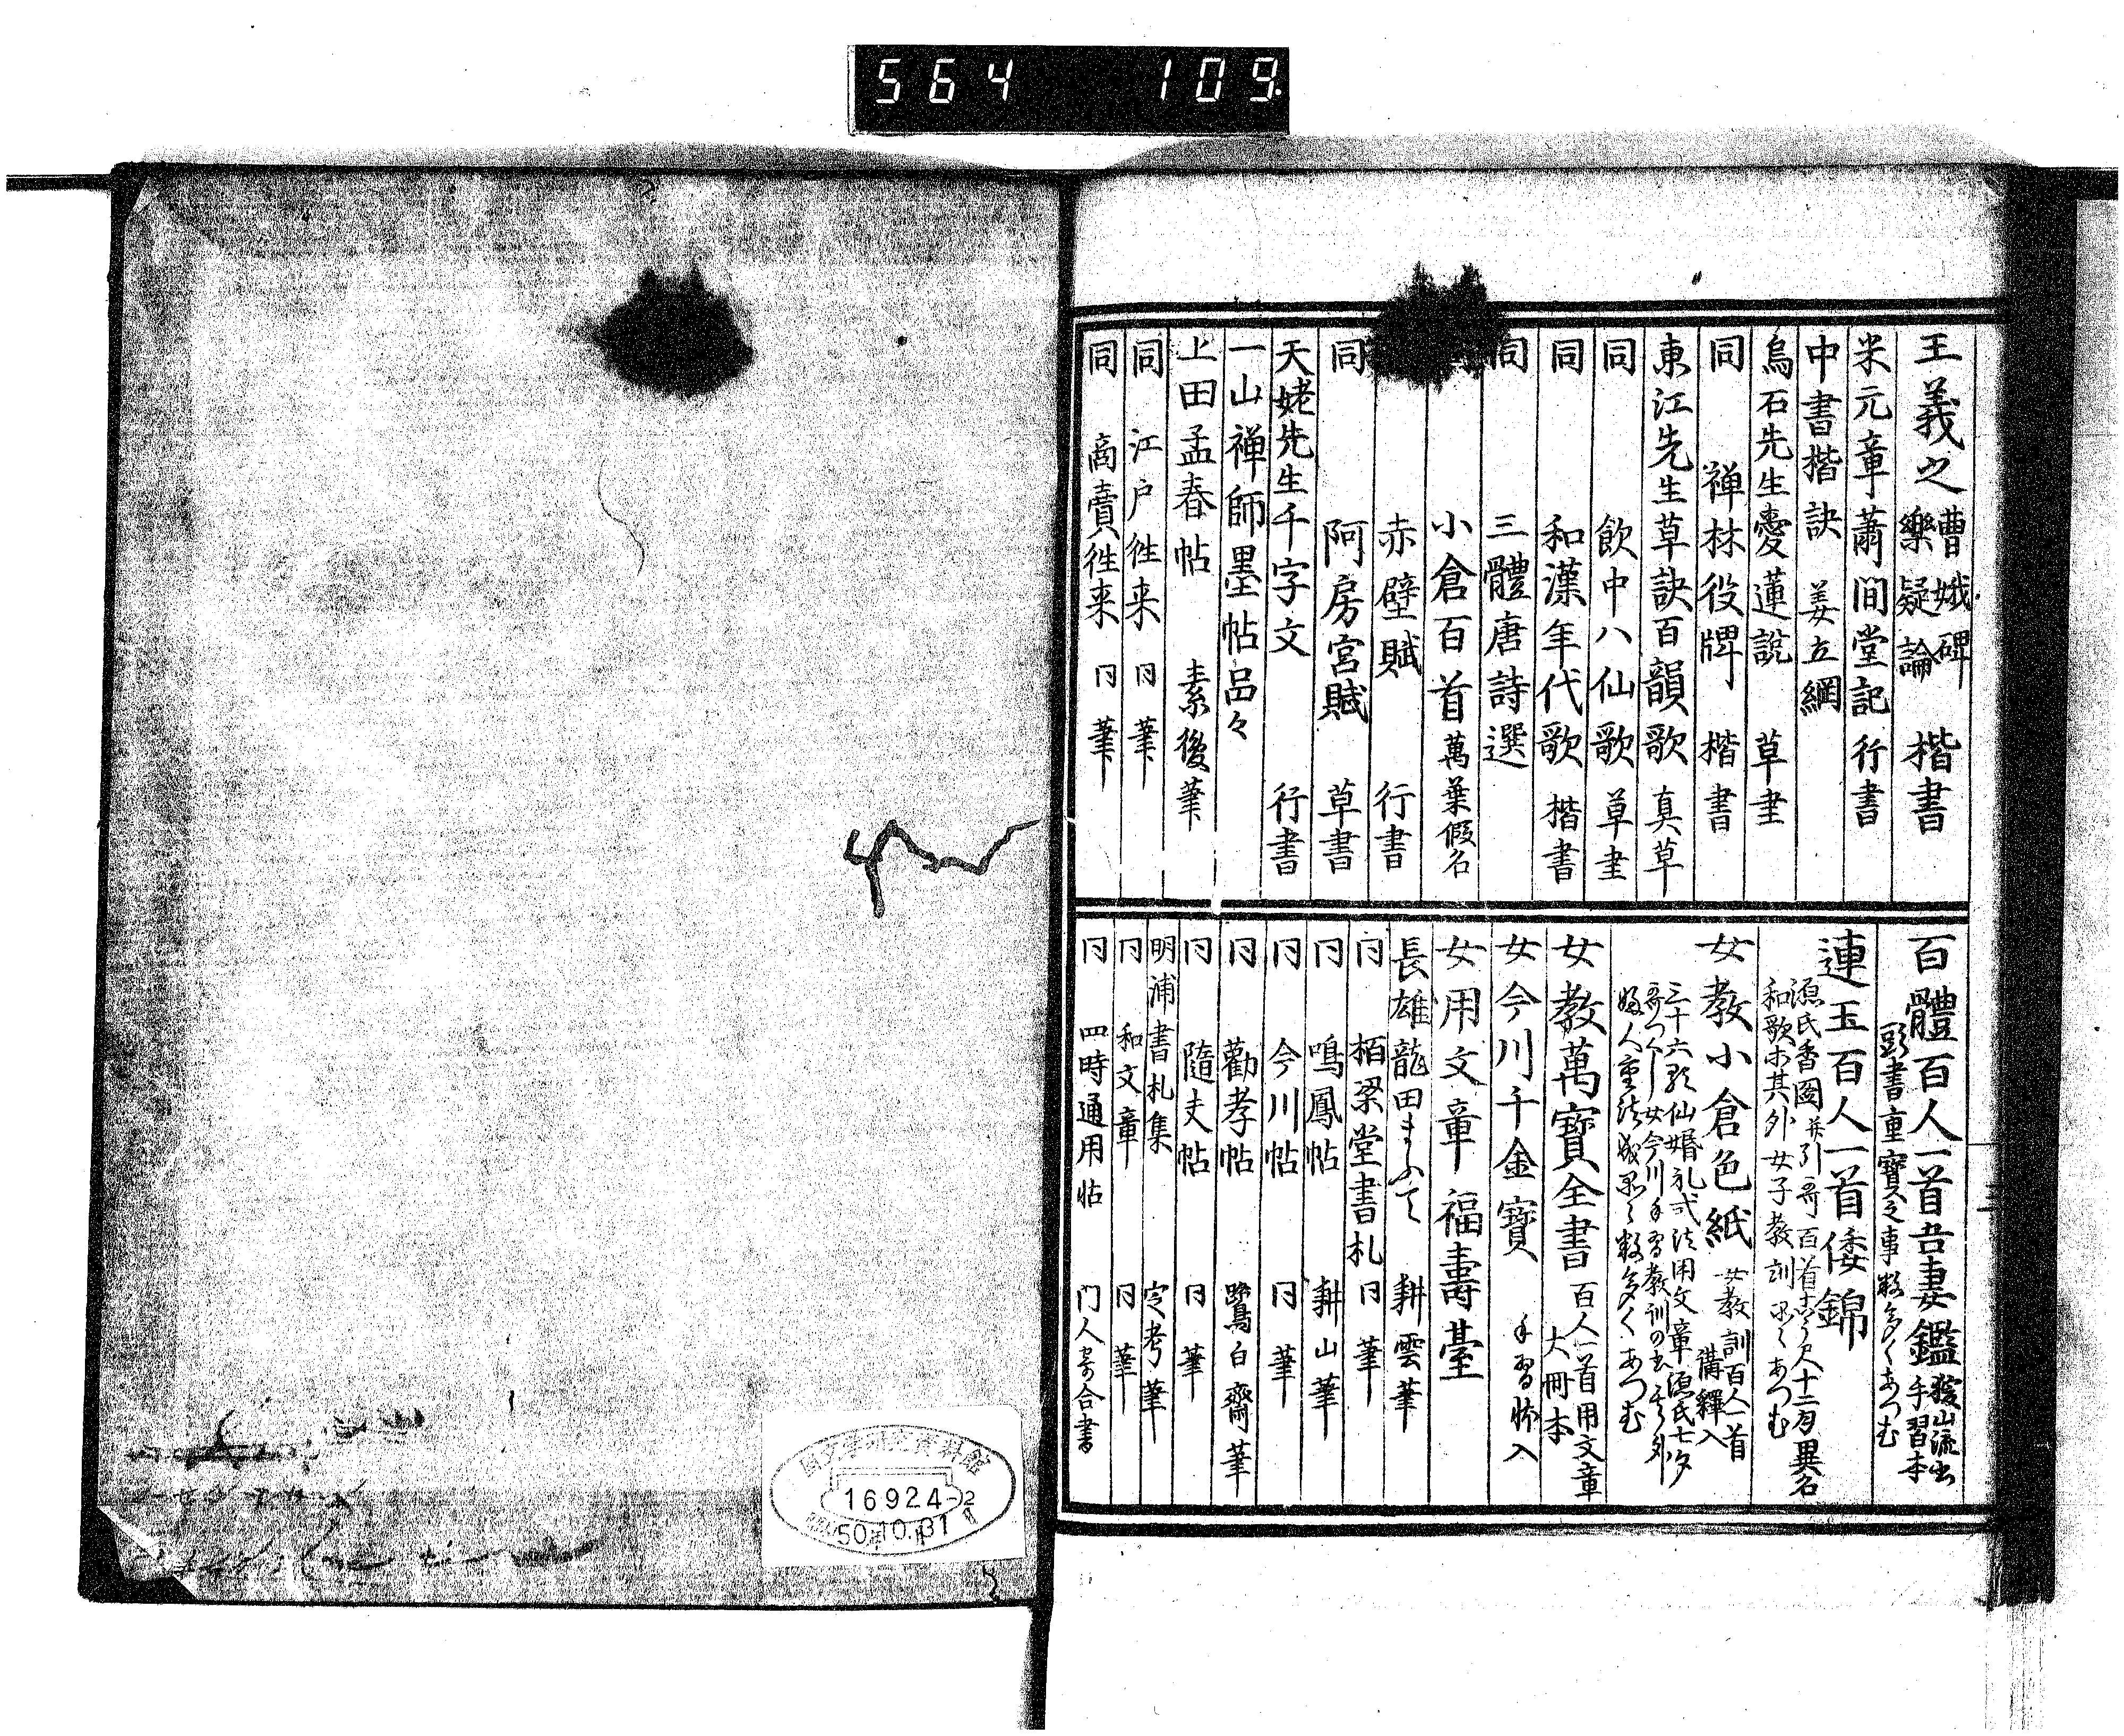 564 109
王羲之 曹娥碑 樂毅論 楷書
米元章蕭間堂記 行書
中書楷訣 姜立綱
烏石先生愛蓮説 草書
同 禅林役牌 楷書
東江先生草訣百韻歌 真草
同 飲中八仙歌 草書
同 和漢年代歌 楷書
同 三體唐詩選
小倉百首 萬葉假名
赤壁賦 行書
同 阿房宮賦 草書
天姥先生千字文 行書
一山禅師墨帖品々
上田孟春帖 素後筆
同 江戸徃来 同筆
同 商賣徃来 同筆
百體百人一首吾妻鑑 手習本
頭書重寳之事数多くあつむ
連玉百人一首倭錦
源氏香圖并引哥 百首 十二月異名
和歌 其外女子教訓 品々あつむ
女教小倉色紙 女教訓百人一首 講釋入
三十六歌仙婚礼式法用文章源氏七夕
哥つくし女今川手習教訓の書 其外
婦人重法成品々数多くあつむ
女教萬寳全書 百人一首用文章 大冊本
女今川千金寳 手習帖入
女用文章福壽臺
長雄龍田まふて 耕雲筆
同 栢梁堂書札 同筆
同 鳴鳳帖 耕山筆
同 今川帖 同筆
同 勸孝帖 鷺白齋筆
同 隨丈帖 同筆
明浦書札集 定考筆
同 和文章 同筆
同 四時通用帖 门人寄合書
国文学研究資料館
16924-2
昭和50年10月31日